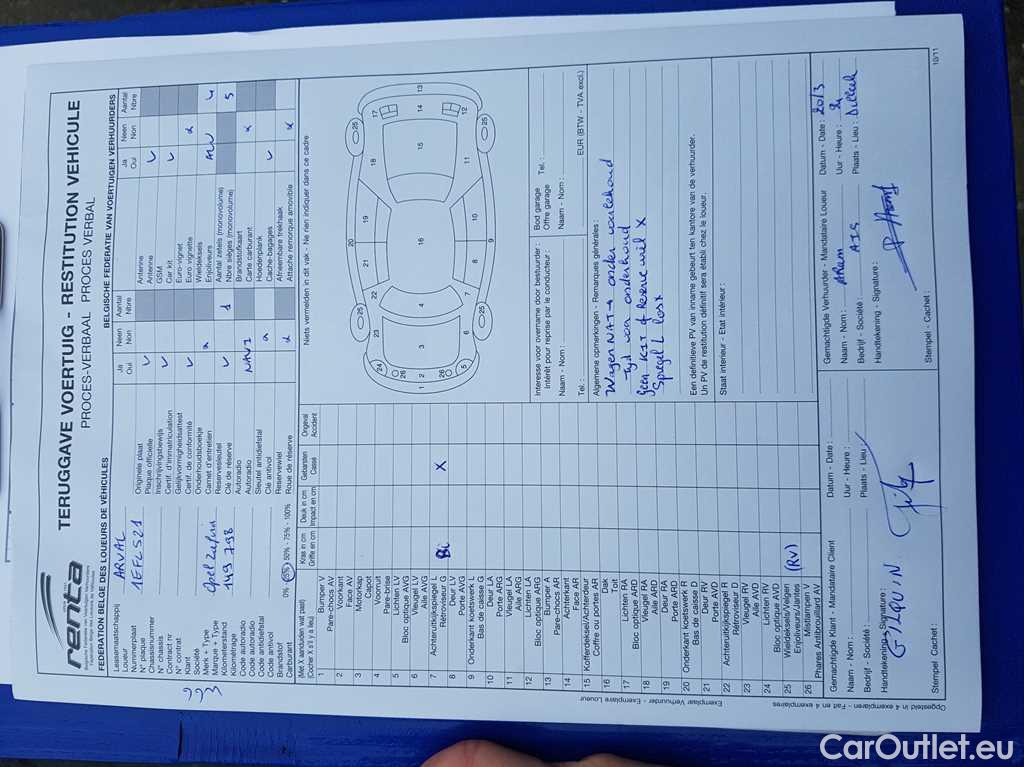 renta
TERUGGAVE VOERTUIG - RESTITUTION VEHICULE
PROCES-VERBAAL PROCES VERBAL
FEDERATION BELGE DES LOUEURS DE VÉHICULES
BELGISCHE FEDERATIE VAN VOERTUIGEN VERHUURDERS
Leasemaatschappij
Loueur
ARVAL
Nummerplaat
N° plaque
1EFL521
Chassisnummer
N° chassis
Contract nr
N° contrat
Klant
Société
Merk + Type
Marque + Type
Opel Zafira
Kilometerstand
Kilométrage
149 798
Code autoradio
Code autoradio
Code antidiefstal
Code antivol
Brandstof
Carburant
0% 25% - 50% - 75% - 100%
Ja
Oui
Neen
Non
Aantal
Nbre
Originele plaat
Plaque officielle
Inschrijvingsbewijs
Certif. d'immatriculation
Gelijkvormigheidsattest
Certif. de conformité
Onderhoudsboekje
Carnet d'entretien
Reservesleutel
Clé de réserve
1
Autoradio
Autoradio
NAVI
Sleutel antidiefstal
Clé antivol
Reservewiel
Roue de réserve
Ja
Oui
Neen
Non
Aantal
Nbre
Antenne
Antenne
GSM
Car kit
Euro-vignet
Euro vignette
Wieldeksels
Enjoliveurs
ALU
4
Aantal zetels (monovolume)
Nbre sièges (monovolume)
5
Brandstofkaart
Carte carburant
Hoedenplank
Cache-bagages
Afneembare trekhaak
Attache remorque amovible
(Met X aanduiden wat past)
(Cocher X s'il y a lieu)
Kras in cm
Griffe en cm
Deuk in cm
Impact en cm
Gebarsten
Cassé
Ongeval
Accident
1 Bumper V
Pare-chocs AV
2 Voorkant
Face AV
3 Motorkap
Capot
4 Voorruit
Pare-brise
5 Lichten LV
Bloc optique AVG
6 Vleugel LV
Aile AVG
7 Achteruitkijkspiegel L
Rétroviseur G
X
8 Deur LV
Porte AVG
9 Onderkant koetswerk L
Bas de caisse G
10 Deur LA
Porte ARG
11 Vleugel LA
Aile ARG
12 Lichten LA
Bloc optique ARG
13 Bumper A
Pare-chocs AR
14 Achterkant
Face AR
15 Kofferdeksel/Achterdeur
Coffre ou portes AR
16 Dak
Toit
17 Lichten RA
Bloc optique ARD
18 Vleugel RA
Aile ARD
19 Deur RA
Porte ARD
20 Onderkant koetswerk R
Bas de caisse D
21 Deur RV
Porte AVD
22 Achteruitkijkspiegel R
Rétroviseur D
23 Vleugel RV
Aile AVD
24 Lichten RV
Bloc optique AVD
25 Wieldeksels/Velgen
Enjoliveurs/Jantes
(RV)
26 Mistlampen V
Phares Antibrouillard AV
Niets vermelden in dit vak - Ne rien indiquer dans ce cadre
Interesse voor overname door bestuurder :
Intérêt pour reprise par le conducteur :
Naam - Nom :
Tel. :
Bod garage
Offre garage
Tel. :
Naam - Nom :
EUR (BTW - TVA excl.)
Algemene opmerkingen - Remarques générales :
Wagen NAT → onder voorbehoud
Tyd van onderhoud
Geen KIT of reservewiel X
Spiegel L los X
Een definitieve PV van inname gebeurt ten kantore van de verhuurder.
Un PV de restitution définitif sera établi chez le loueur.
Staat interieur - Etat intérieur :
Gemachtigde Klant - Mandataire Client
Datum - Date :
Naam - Nom :
Uur - Heure :
Bedrijf - Société :
Plaats - Lieu :
Handtekening - Signature :
Stempel - Cachet :
Gemachtigde Verhuurder - Mandataire Loueur
Datum - Date : 20/3
Naam - Nom : ARam
Uur - Heure :
Bedrijf - Société : AIS
Plaats - Lieu : Dilbeek
Handtekening - Signature :
Stempel - Cachet :
Opgesteld in 4 exemplaren - Fait en 4 exemplaires
Exemplaar Verhuurder - Exemplaire Loueur
10/11
CarOutlet.eu